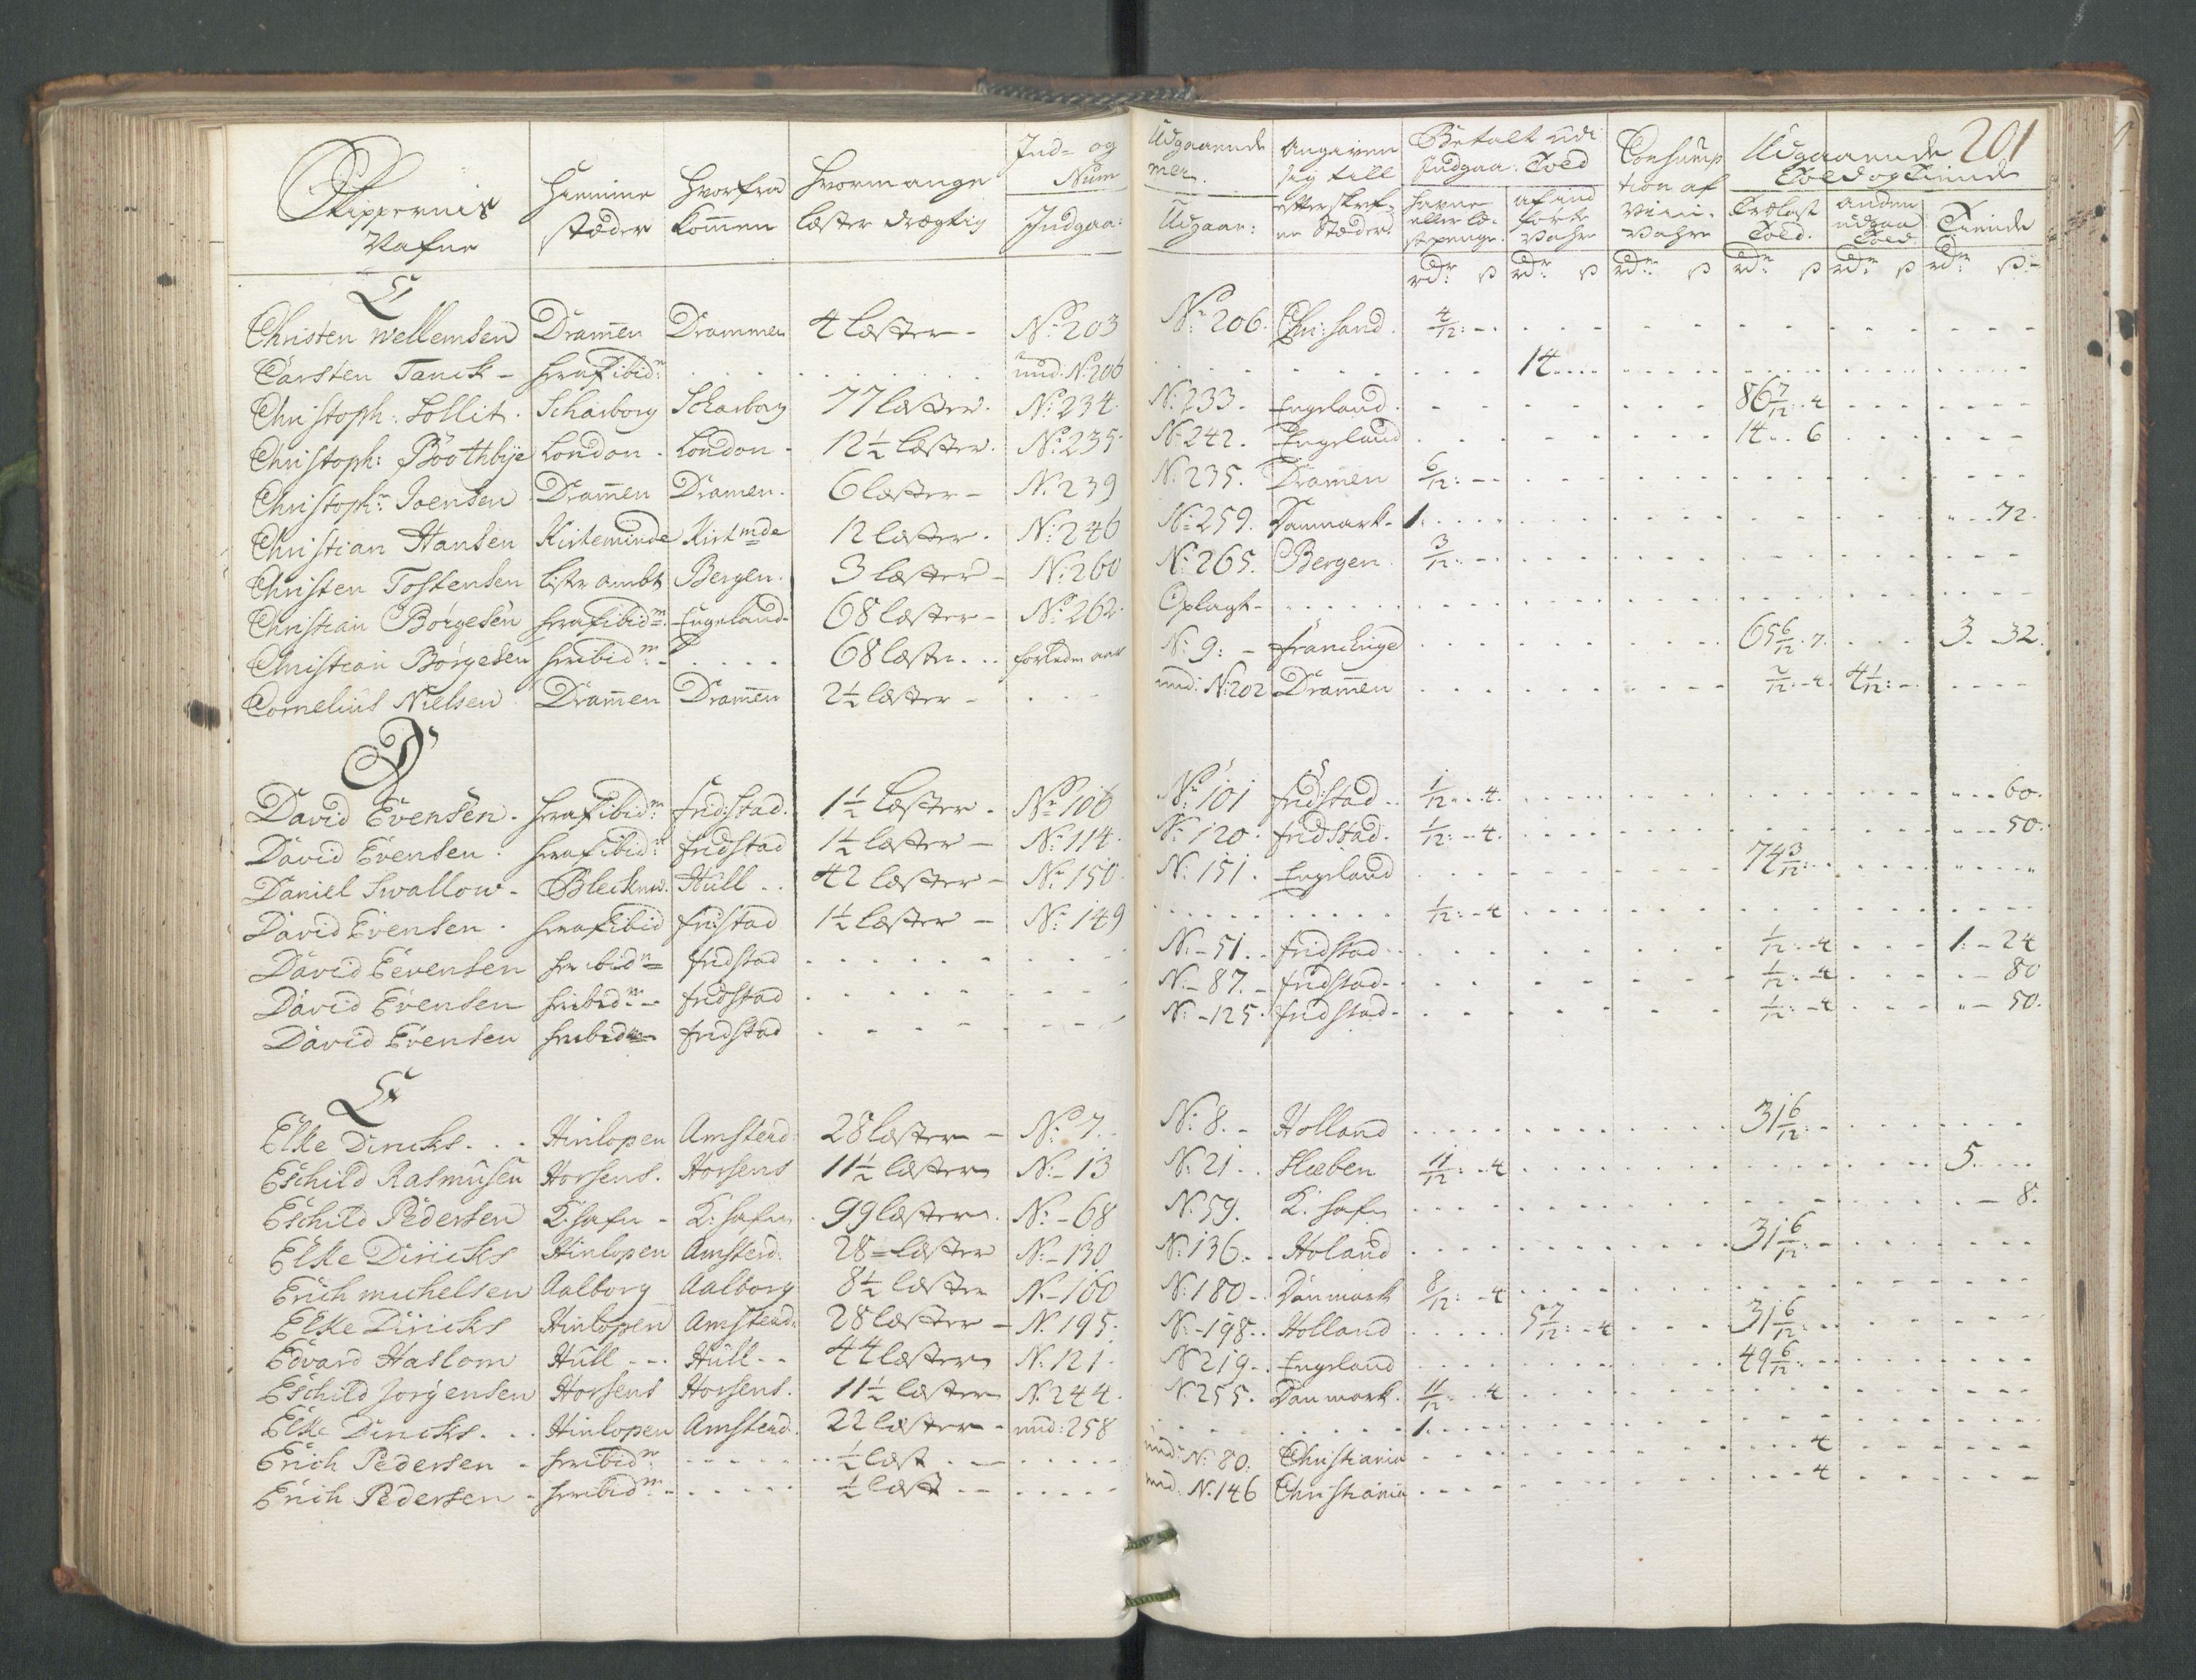 Skippernis Nafne | Hiemme stæder | Hvorfra kommen | Hvormange læster drægtig | Ind- og Num Indgaa: | Udgaaende mer. Udgaae: | Angiven sig till efterskrefne Stæder | Betalt udi Indgaa: Told | Consumption af Vahre | Udgaaende Told og Tiende | 201
C
Christen Wellemsen | Dramen | Drammen | 4 læster - | No 203 | No 206. | Chr: sand. | 4/12: -
Carsten Tanck - | ibidm | und: N: 206 | 14
Christoph: Sollit. | Scharborg | Scharborg | 77 læster. | No 234. | N: 233. | Engeland. | 86 7/12. 4
Christoph: Boothbye | London. | London - | 12½ læster. | No 235. | No 242. | Engeland | 14.. 6
Christoph: Joensen | Dramen | Dramen. | 6 læster - | N: 239 | N: 235. | Dramen | 6/12: -
Christian Hansen | Kirteminde | Kirtmde | 12 læster. | N: 246 | N: 259. | Danmark. | 1. | 72.
Christen Tostensen | Liste ambt | Bergen. | 3 læster - | N: 260 | N: 265. | Bergen. | 3/12: -
Christian Börgesen | ibidm | Engeland - | 68 læster - | No 262. | Oplagt -
Christian Börgesen | ibidm | 68 læster... | forleden aar | N: 9: - | Franckrige | 65 6/12. 7. | 3. 32.
Cornelius Nielsen | Dramen | Dramen | 2½ læster - | und: N: 202 | Dramen | 2/12: - 4. | 4 1/12: -
D
David Evensen. | ibidm | fridstad. | 1½ læster. | No 106 | No 101 | fridstad.. | 1/12. . 4. | 60.
David Evensen. | ibidm | fridstad | 1½ læster - | No 114. | No 120. | fridstad. | 1/12: - 4. | 50.
Daniel Swallow - | Hull.. | 42 læster - | No 150. | N: 151. | Engeland | 74 3/12:
David Evensen. | ibid | fristad | 1½ læster - | No 149 | 1/12: - 4
David Eevensen | ibidm | fridstad | N: - 51. | fridstad | 1/12: - 4 | 1: - 24
David Evensen | ibidm - | fridstad | N: - 87. - | fridstad - | 1/12: - 4 | 80
David Evensen | ibidm | fridstad | N: - 125. | fridstad. | 1/12: - 4 | 50.
E
Elke Diricks... | Hinlopen | Amsterd: | 28 læster - | No 7. | N: 8. - | Holland | 31 6/12: -
Eschild Rasmusen | Horsens. | Horsens | 11½ læster | N: - 13 | N: 21.. | Sleben | 11/12: . 4 | 5.
Eschild Pedersen | K: hafn - | K: hafn | 99 læster. | N: - 68 | N: 59. | K: hafn | 8.
Elke Diricks | Hinlopen | Amsterd. | 28 - læster | N: - 130 | N: 136.. | Holand | 31 6/12: -
Erich michelsen | Aalborg | Aalborg | 8½ læster | N: - 160 | N: 180 - | Danmark | 8/12: - 4
Elke Diricks | Hinlopen | Amsterd: | 28 læster - | N: 195. | N: - 198.. | Holland | 5 7/12: - 4 | 31 6/12:
Edvard Haslom | Hull - .. | Hull - - | 44 læster | N: 121. | N: 219. - | Engeland | 49 6/12: -
Eschild Jorgensen | Horsens | Horsens. | 11½ læster | N: 244. | N: 255. | Danmark. | 11/12: - 4
Elke Diricks. . . | Hinlopen | Amsterd. | 22 læster - | und: 258 | 1.
Erich Pedersen - | ibidm | ½ læst. - | und: N: 80. | Christiania | 4
Erich Pedersen - | ibidm - | ½ læst - - | und. N. 146 | Christiania | 4